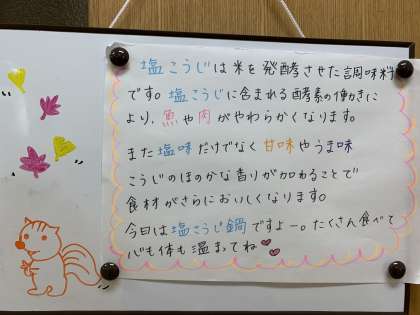 塩こうじは米を発酵させた調味料
です。塩こうじに含まれる酵素の働きに
より、魚や肉がやわらかくなります。
また塩味だけでなく甘味やうま味
こうじのほのかな香りが加わることで
食材がさらにおいしくなります。
今日は塩こうじ鍋ですよー。たくさん食べて
心も体も温まってね